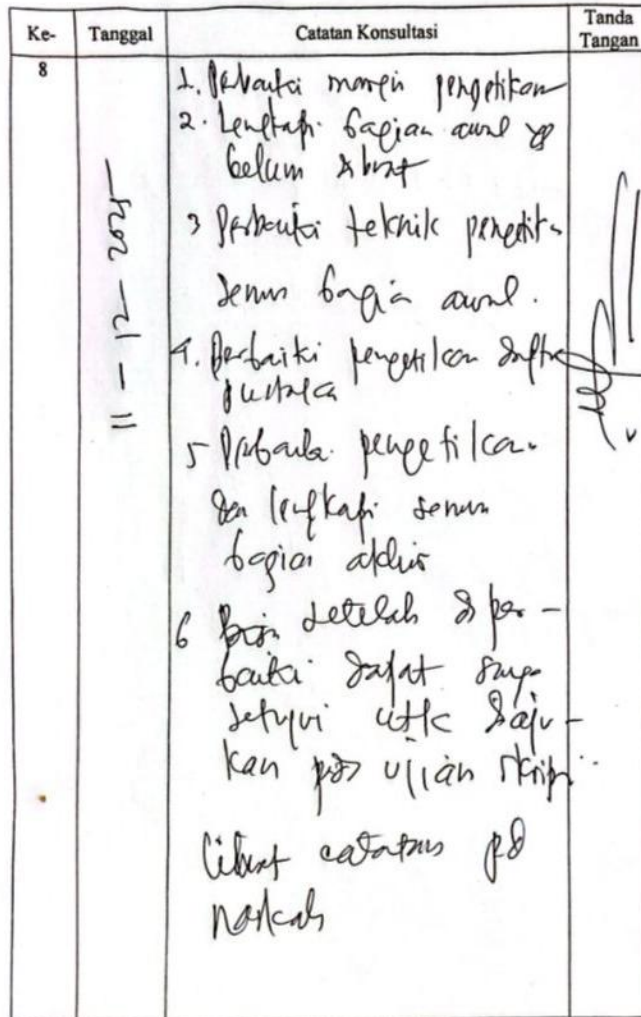 Ke-
Tanggal
Catatan Konsultasi
Tanda
Tangan
8
11 - 12 - 2024
1. Perbaiki margin pengetikan
2. Lengkapi bagian awal yg
belum dibuat
3 Perbaiki teknik pengetikan
semua bagian awal.
4. Perbaiki pengetikan daftar
pustaka
5 Perbaiki pengetikan
dan lengkapi semua
bagian akhir
6 setelah diper-
baiki dapat
setujui utk diaju-
kan pd ujian skripsi
Lihat catatan pd
naskah